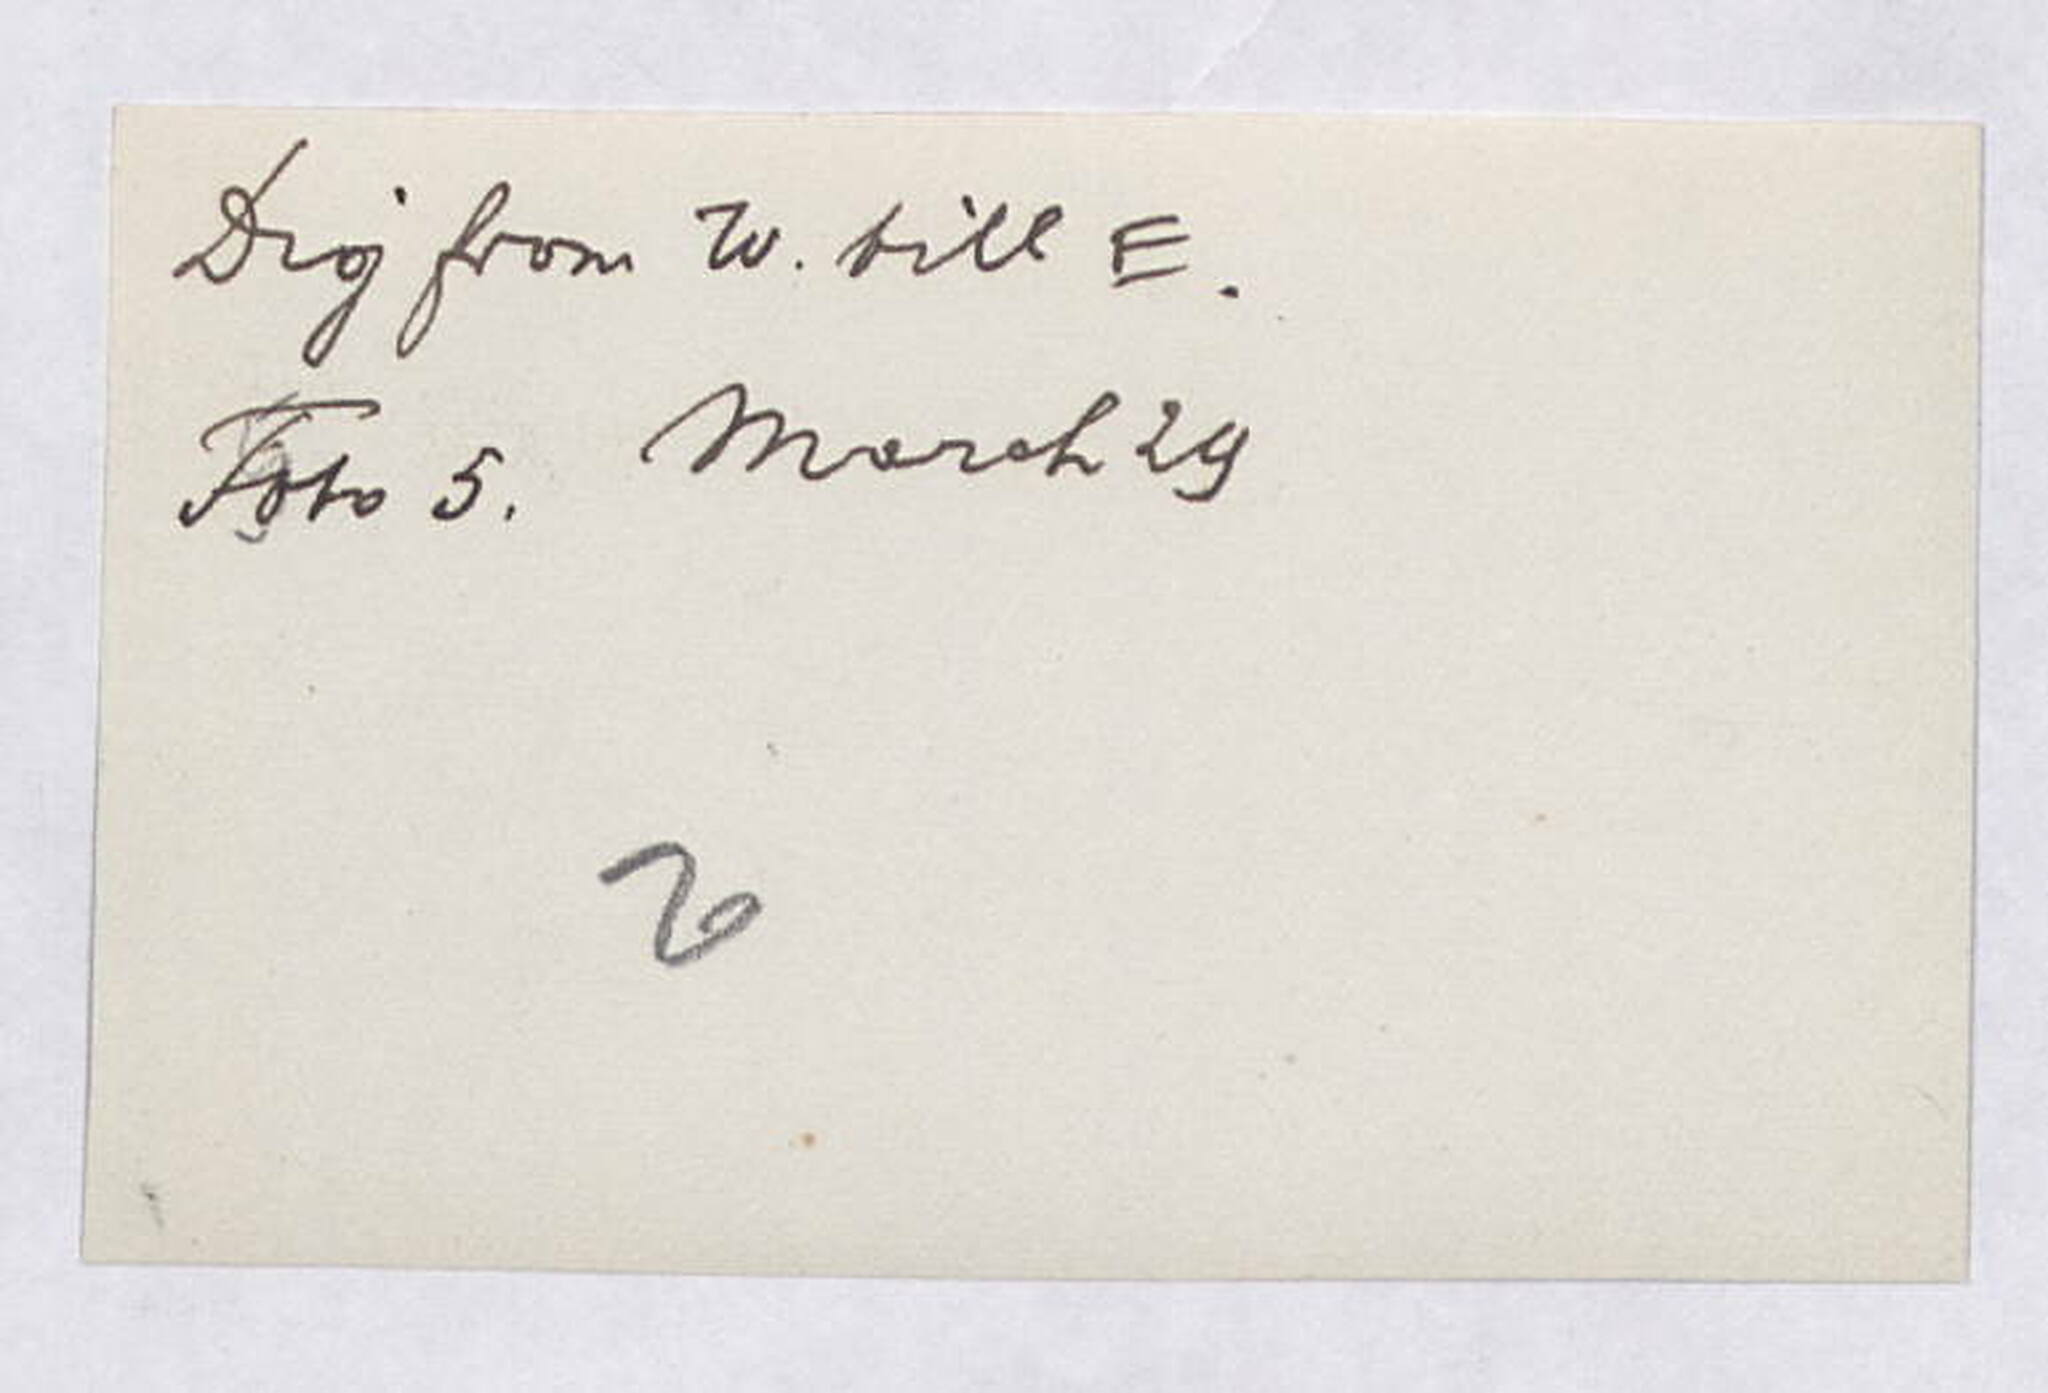 Dig from W. till E.
Foto 5. March 29